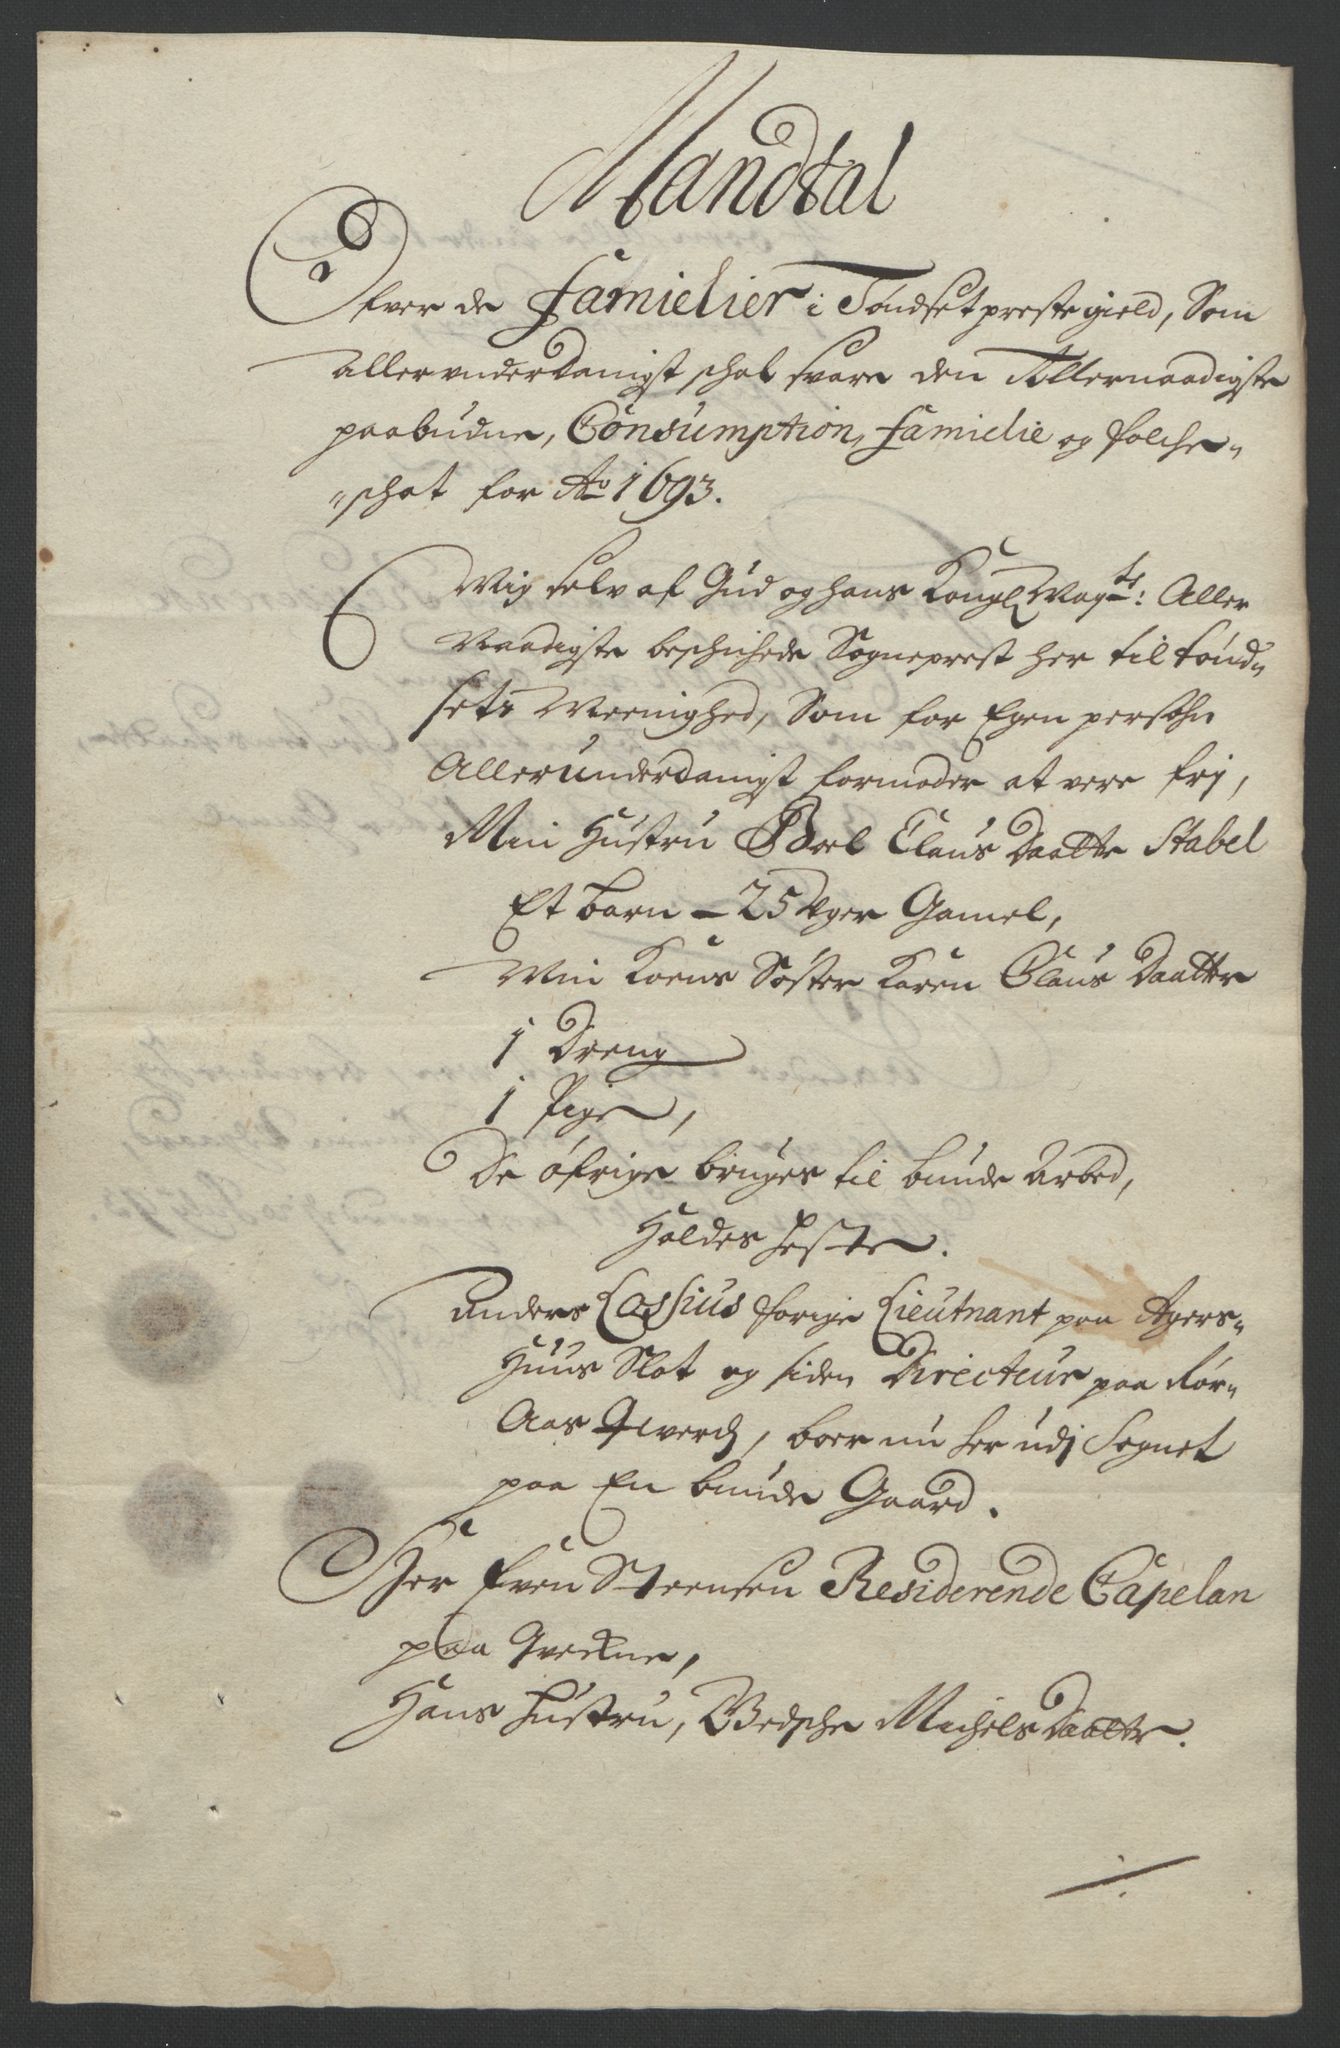 Mandtal
Ofver de Familier i Tøndset prestegield, Som
allerunderdanigst schal svare den Allernaadigste
paabudne, Consumption, Familie og folche-
-schat for Ao 1693.
Mig selv af Gud og hans Kongl Mayts: Aller
Naadigste beschichede Sogneprest her til Tønd-
sets Meenighed, Som for Egen persohn
Allerunderdanigst formoder at vere frj,
Min Hustru Boel Claus Daatter Stabel
Et barn - 25 Uger Gamel,
Min Koenes Søster Karen Claus Daatter
1 Dreng
1 Pige,
De øfrige bruges til bunde Arbed,
Holdes heste.
Anders Cassius forige Lieutnant paa Agers-
Huus Slot og siden Directeur paa Rør-
Aas Werch, boer nu her udj Sognet
paa En bunde Gaard.
Her Even Steensen Residerende Capelan
paa Qvekne,
Hans hustru, Wedsche Michels Daatter.